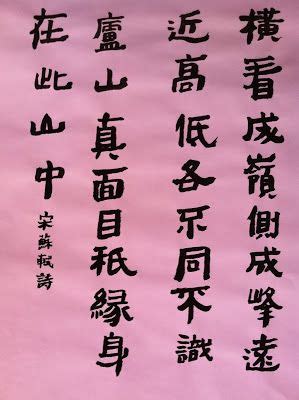 橫看成嶺側成峰遠
近高低各不同不識
廬山真面目祇緣身
在此山中
宋蘇軾詩